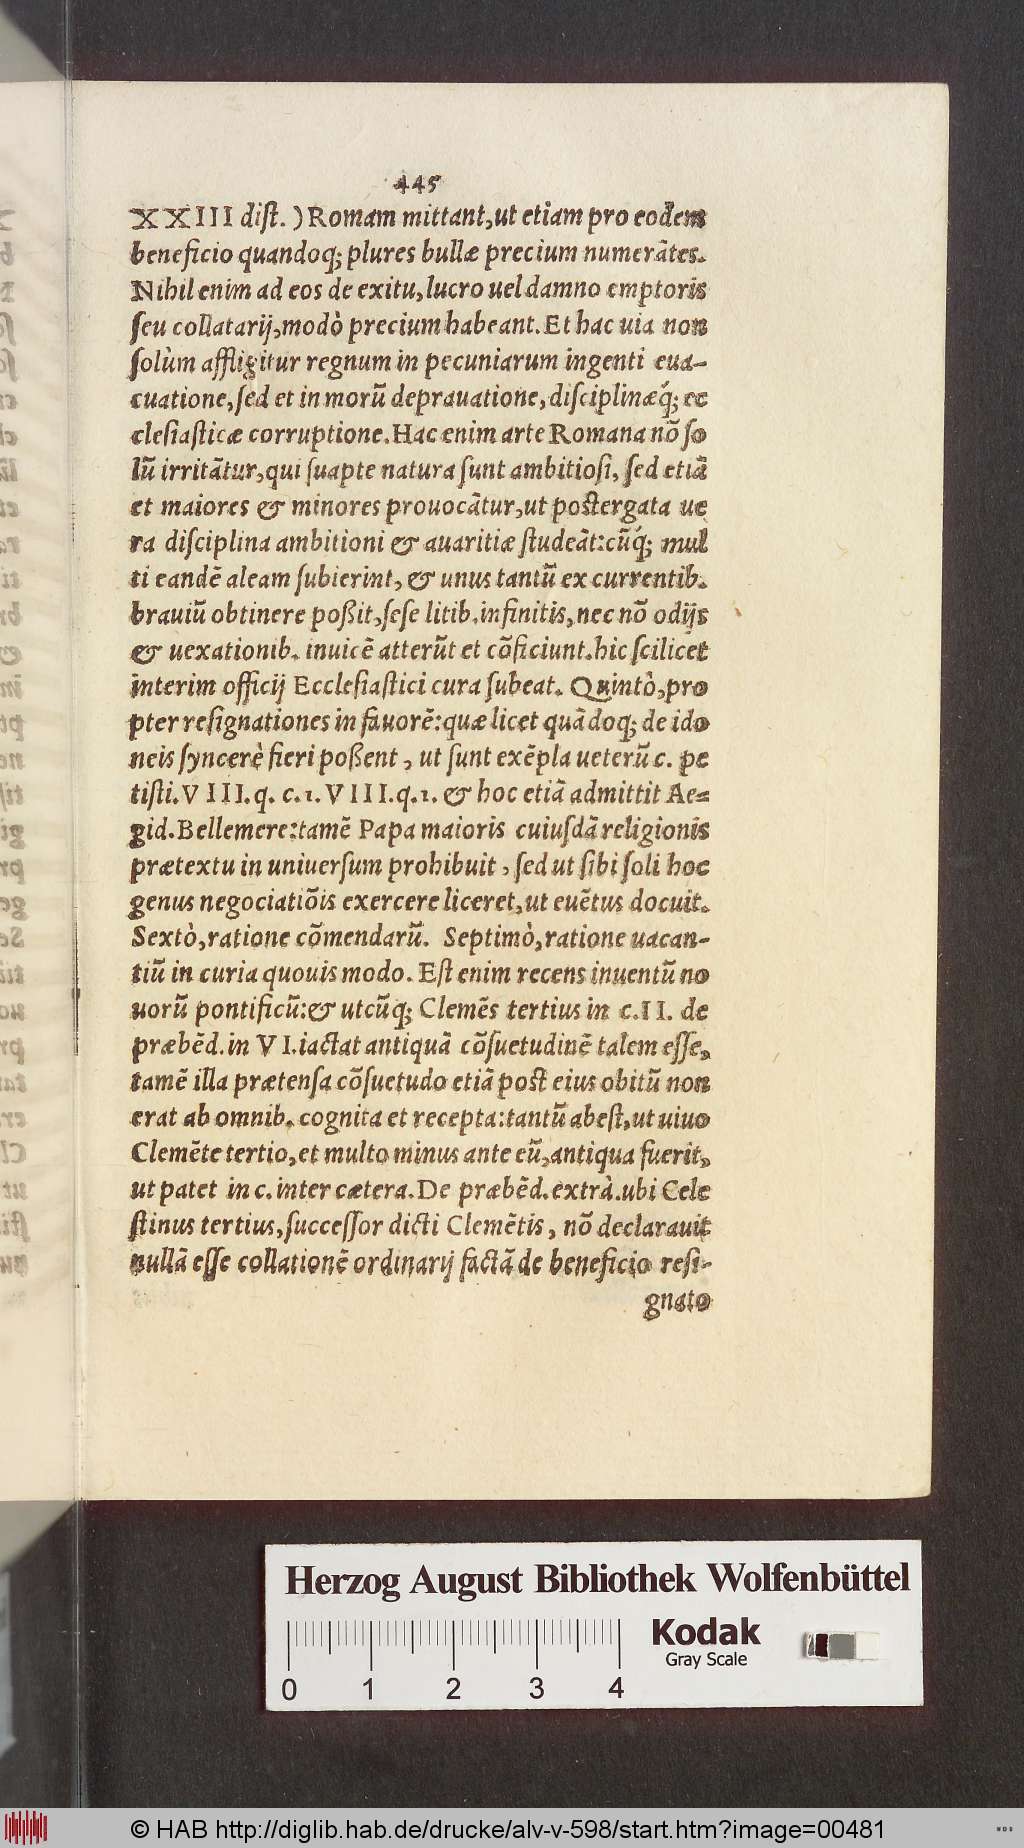 445
XXIII diſt.) Romam mittant, ut etiam pro eodem
beneficio quandoq; plures bullæ precium numerãtes.
Nihil enim ad eos de exitu, lucro uel damno emptoris
ſeu collatarij, modò precium habeant. Et hac uia non
ſolùm affligitur regnum in pecuniarum ingenti eua-
cuatione, ſed et in morũ deprauatione, diſciplinæq́; ec
cleſiaſticæ corruptione. Hac enim arte Romana nõ ſo
lũ irritãtur, qui ſuapte natura ſunt ambitioſi, ſed etiã
et maiores & minores prouocãtur, ut poſtergata ue
ra diſciplina ambitioni & auaritiæ ſtudeãt: cũq́; mul
ti eandẽ aleam ſubierint, & unus tantũ ex currentib.
brauiũ obtinere poßit, ſeſe litib. infinitis, nec nõ odijs
& uexationib. inuicẽ atterũt et cõficiunt. hic ſcilicet
interim officij Eccleſiaſtici cura ſubeat. Quintò, pro
pter reſignationes in fauorẽ: quæ licet quãdoq; de ido
neis ſyncerè fieri poßent, ut ſunt exẽpla ueterũ c. pe
tiſti. VIII. q. c. 1. VIII. q. 1. & hoc etiã admittit Ae-
gid. Bellemere: tamẽ Papa maioris cuiuſdã religionis
prætextu in uniuerſum prohibuit, ſed ut ſibi ſoli hoc
genus negociatiõis exercere liceret, ut euẽtus docuit.
Sextò, ratione cõmendarũ. Septimò, ratione uacan-
tiũ in curia quouis modo. Eſt enim recens inuentũ no
uorũ pontificũ: & utcũq; Clemẽs tertius in c. II. de
præbẽd. in VI. iactat antiquã cõſuetudinẽ talem eſſe,
tamẽ illa prætenſa cõſuetudo etiã poſt eius obitũ non
erat ab omnib. cognita et recepta: tantũ abeſt, ut uiuo
Clemẽte tertio, et multo minus ante eũ, antiqua fuerit,
ut patet in c. inter cætera. De præbẽd. extrà. ubi Cele
ſtinus tertius, ſucceſſor dicti Clemẽtis, nõ declarauit
nullã eſſe collationẽ ordinarij factã de beneficio reſi-
gnato
Herzog August Bibliothek Wolfenbüttel
0 1 2 3 4
Kodak
Gray Scale
© HAB http://diglib.hab.de/drucke/alv-v-598/start.htm?image=00481